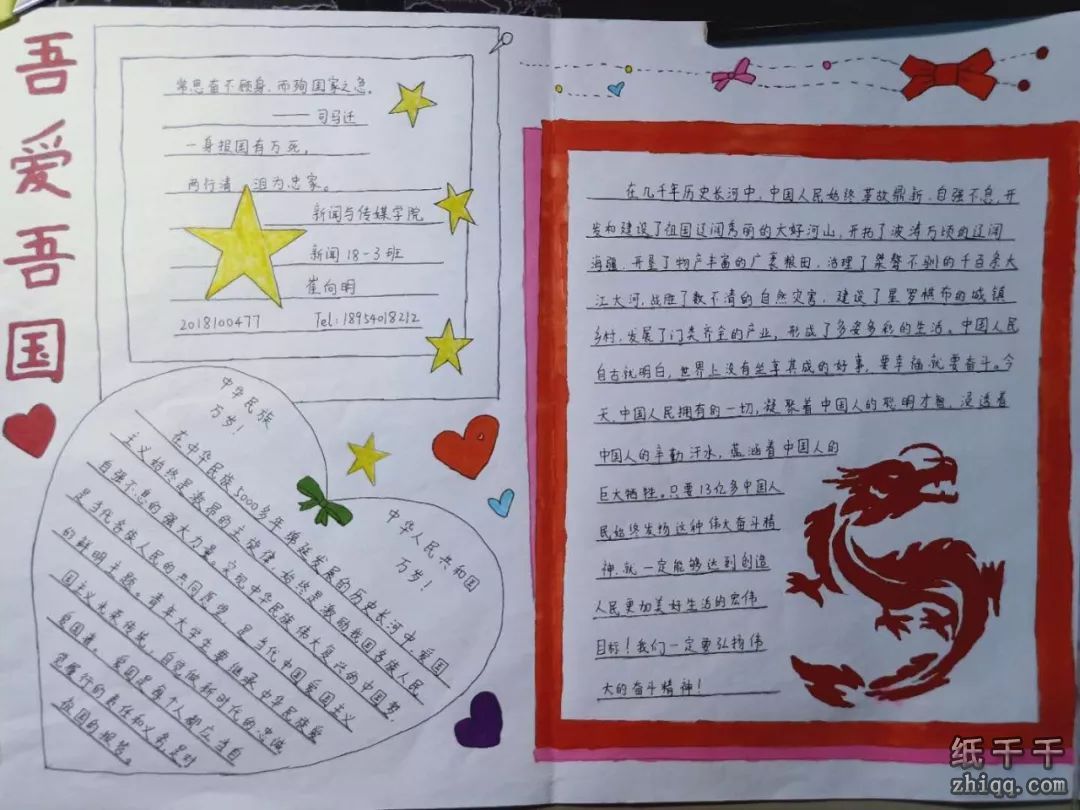 吾爱吾国
常思奋不顾身，而殉国家之急。
——司马迁
一身报国有万死，
两行清 泪为忠家。
新闻与传媒学院
新闻18-3班
崔向明
2018100477 Tel:18954018212
中华民族
万岁！
中华人民共和国
万岁！
在中华民族5000多年绵延发展的历史长河中，爱国
主义始终是激昂的主旋律，始终是激励我国各族人民
自强不息的强大力量。实现中华民族伟大复兴的中国梦，
是当代各族人民的共同愿望，是当代中国爱国主义
的鲜明主题。青年大学生要继承中华民族爱
国主义光荣传统，自觉做新时代的忠诚
爱国者。爱国是每个人都应当自
觉履行的责任和义务，是对
祖国的报答。
在几千年历史长河中，中国人民始终革故鼎新、自强不息，开
发和建设了祖国辽阔秀丽的大好河山，开拓了波涛万顷的辽阔
海疆，开垦了物产丰富的广袤粮田，治理了桀骜不驯的千百条大
江大河，战胜了数不清的自然灾害，建设了星罗棋布的城镇
乡村，发展了门类齐全的产业，形成了多姿多彩的生活。中国人民
自古就明白，世界上没有坐享其成的好事，要幸福就要奋斗。今
天，中国人民拥有的一切，凝聚着中国人的聪明才智，浸透着
中国人的辛勤汗水，蕴涵着中国人的
巨大牺牲。只要13亿多中国人
民始终发扬这种伟大奋斗精
神，就一定能够达到创造
人民更加美好生活的宏伟
目标！我们一定要弘扬伟
大的奋斗精神！
纸千千
zhiqq.com